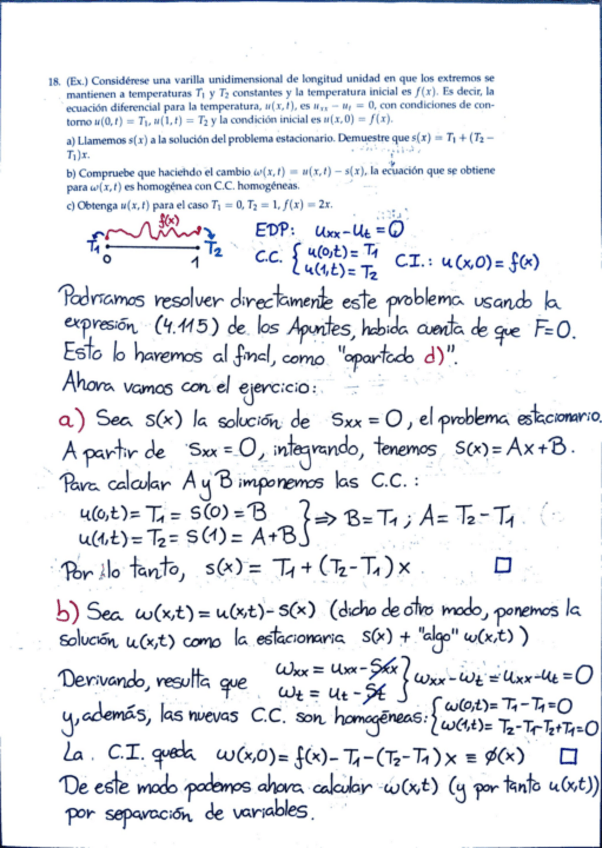 18. (Ex.) Considérese una varilla unidimensional de longitud unidad en que los extremos se
mantienen a temperaturas T₁ y T₂ constantes y la temperatura inicial es f(x). Es decir, la
ecuación diferencial para la temperatura, u(x,t), es uₓₓ − uₜ = 0, con condiciones de con-
torno u(0,t) = T₁, u(1,t) = T₂ y la condición inicial es u(x,0) = f(x).
a) Llamemos s(x) a la solución del problema estacionario. Demuestre que s(x) = T₁ + (T₂ −
T₁)x.
b) Compruebe que haciendo el cambio ω(x,t) = u(x,t) − s(x), la ecuación que se obtiene
para ω(x,t) es homogénea con C.C. homogéneas.
c) Obtenga u(x,t) para el caso T₁ = 0, T₂ = 1, f(x) = 2x.
f(x)
T₁ T₂
0 1
EDP: uxx - ut = 0
C.C. { u(0,t) = T₁
u(1,t) = T₂
C.I.: u(x,0) = f(x)
Podríamos resolver directamente este problema usando la
expresión (4.115) de los Apuntes, habida cuenta de que F=0.
Esto lo haremos al final, como "apartado d)".
Ahora vamos con el ejercicio:
a) Sea s(x) la solución de Sxx = 0, el problema estacionario.
A partir de Sxx = 0, integrando, tenemos S(x) = Ax+B.
Para calcular A y B imponemos las C.C.:
u(0,t) = T₁ = S(0) = B
u(1,t) = T₂ = S(1) = A+B } ⇒ B = T₁ ; A = T₂ - T₁
Por lo tanto, s(x) = T₁ + (T₂-T₁)x □
b) Sea ω(x,t) = u(x,t) - s(x) (dicho de otro modo, ponemos la
solución u(x,t) como la estacionaria s(x) + "algo" ω(x,t))
Derivando, resulta que ωxx = uxx - Sxx
ωt = ut - St } ωxx - ωt = uxx - ut = 0
y, además, las nuevas C.C. son homogéneas: { ω(0,t) = T₁ - T₁ = 0
ω(1,t) = T₂-T₁-T₂+T₁ = 0
La C.I. queda ω(x,0) = f(x) - T₁ - (T₂-T₁)x ≡ ø(x) □
De este modo podemos ahora calcular ω(x,t) (y por tanto u(x,t))
por separación de variables.